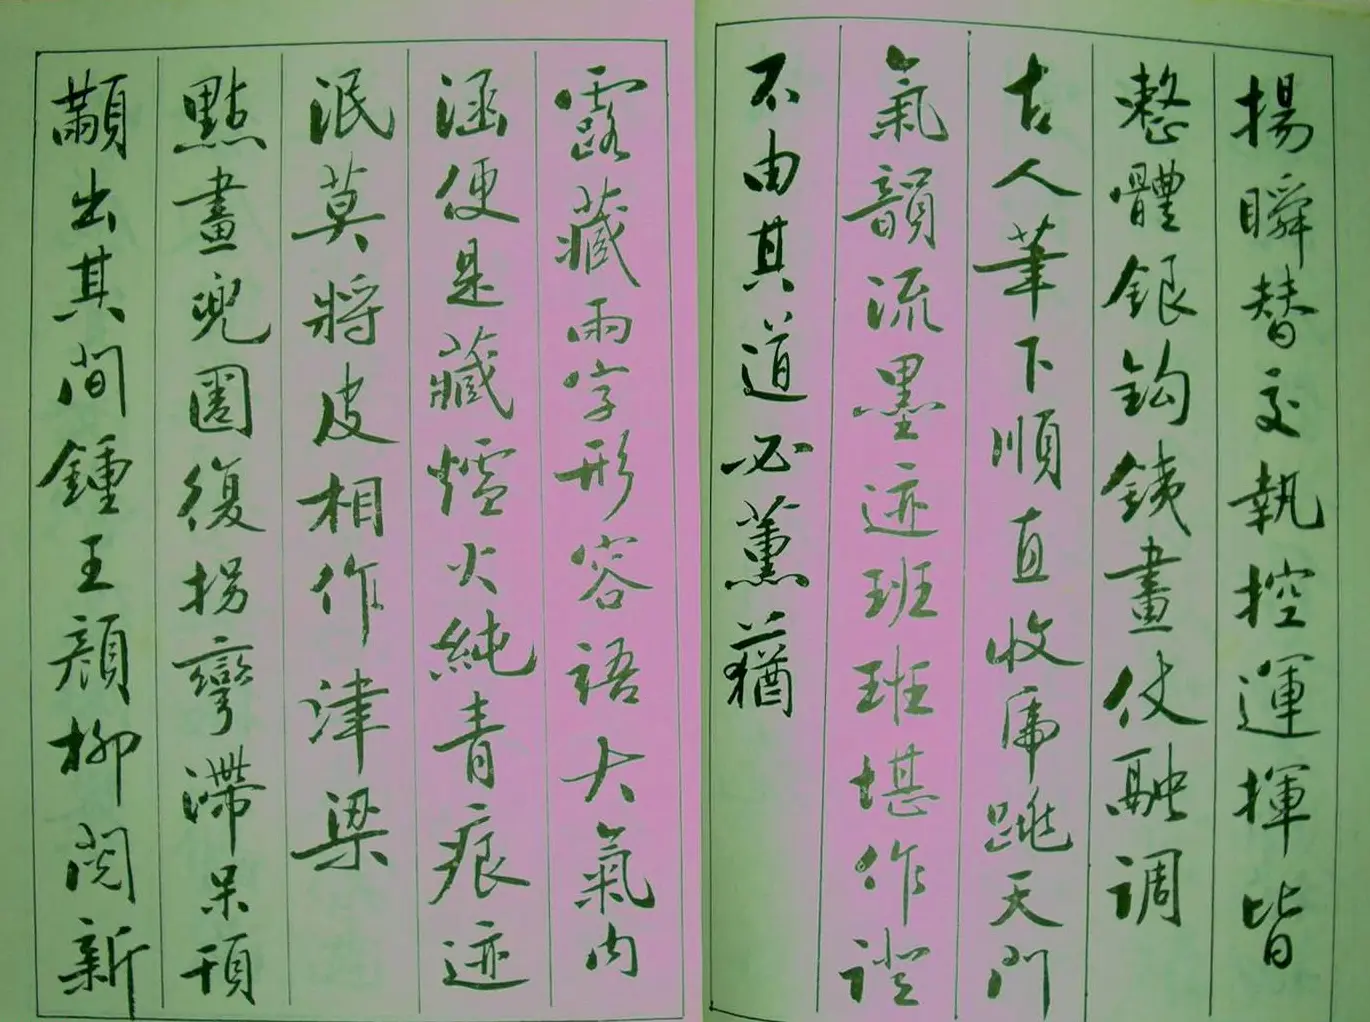 揚瞬替交執控運揮皆
整體銀鈎鐵畫仗融调
古人筆下順直收虎跳天门
氣韻流墨迹班班堪作證
不由其道必薰猶
露藏兩字形容語大氣内
涵便是藏爐火純青痕迹
泯莫將皮相作津梁
點畫兜圈復拐彎滯呆頑
顢出其间鍾王顔柳閱新